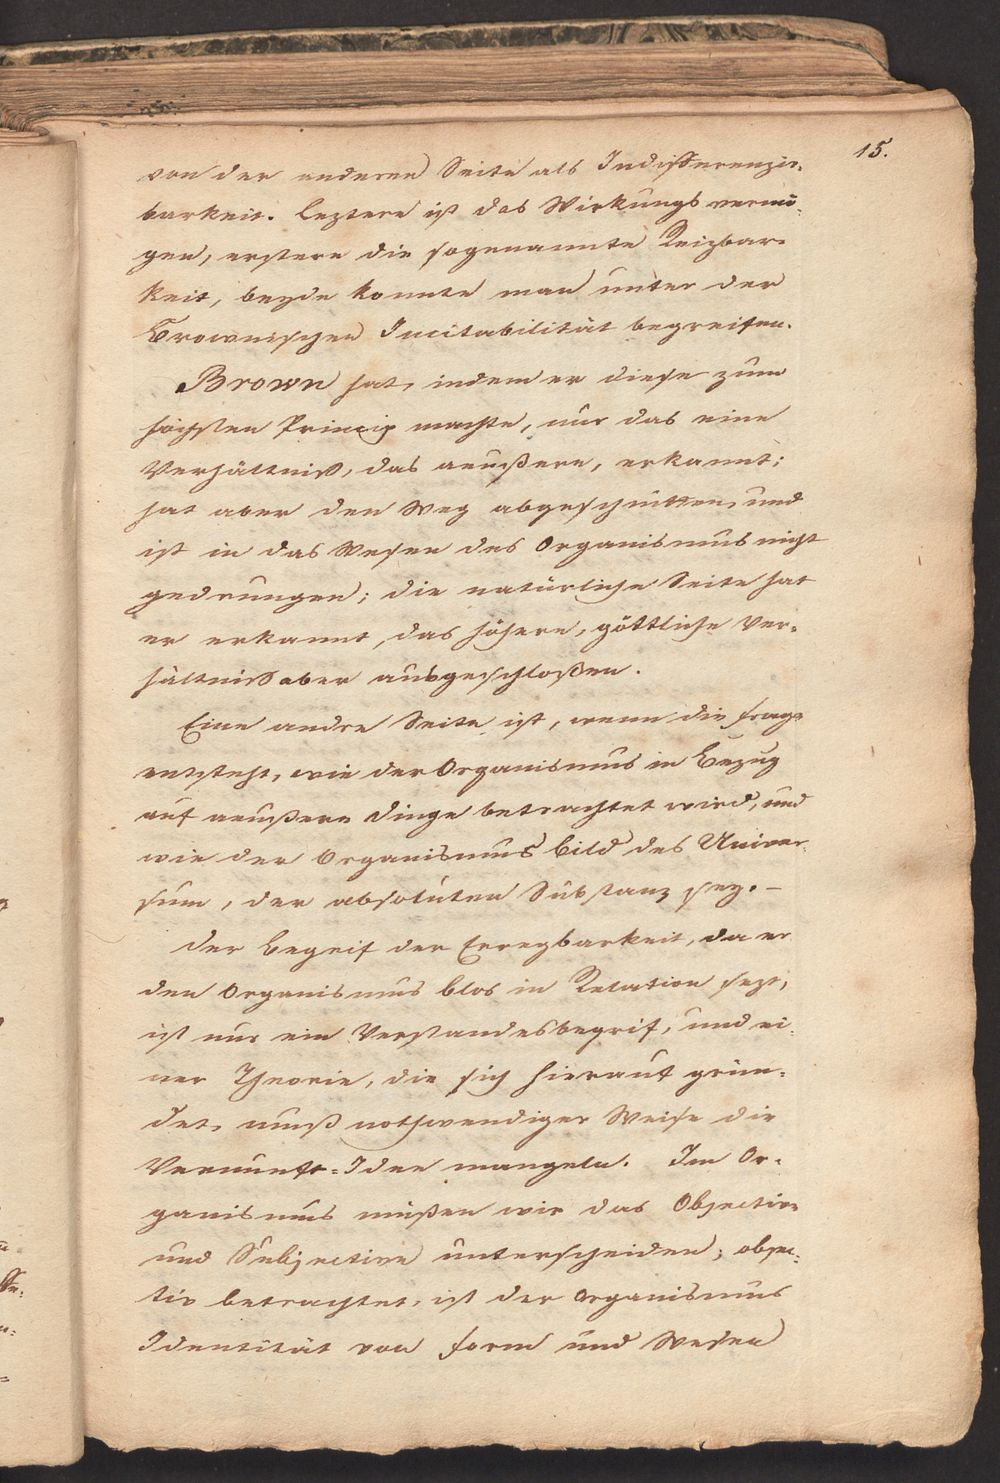 15.
von der anderen Seite als Indifferenzir-
barkeit. leztere ist das Wirkungsvermö-
gen, erstere die sogenannte Reizbar-
keit, beyde konnte man unter der
Brownischen Incitabilität begreifen.
Brown hat, indem er diese zum
höchsten Princip machte, nur das eine
Verhältniß, das aeußere, erkannt;
hat aber den Weg abgeschnitten, und
ist in das Wesen des Organismus nicht
gedrungen; die natürliche Seite hat
er erkannt, das höhere, göttliche Ver-
hältniß aber ausgeschloßen.
Eine andre Seite ist, wenn die Frage
entsteht, wie der Organismus in Bezug
auf aeußere Dinge betrachtet wird, und
wie der Organismus Bild des Univer-
sum, der absoluten Substanz sey. –
Der Begrif der Erregbarkeit, da er
den Organismus blos in Relation sezt,
ist nur ein Verstandesbegrif, und ei-
ner Theorie, die sich hierauf grün-
det, muß nothwendiger Weise die
Vernunft-Idee mangeln. Im Or-
ganismus müßen wir das Objective
und Subjective unterscheiden; objec-
tiv betrachtet, ist der Organismus
Identität von Form und Wesen